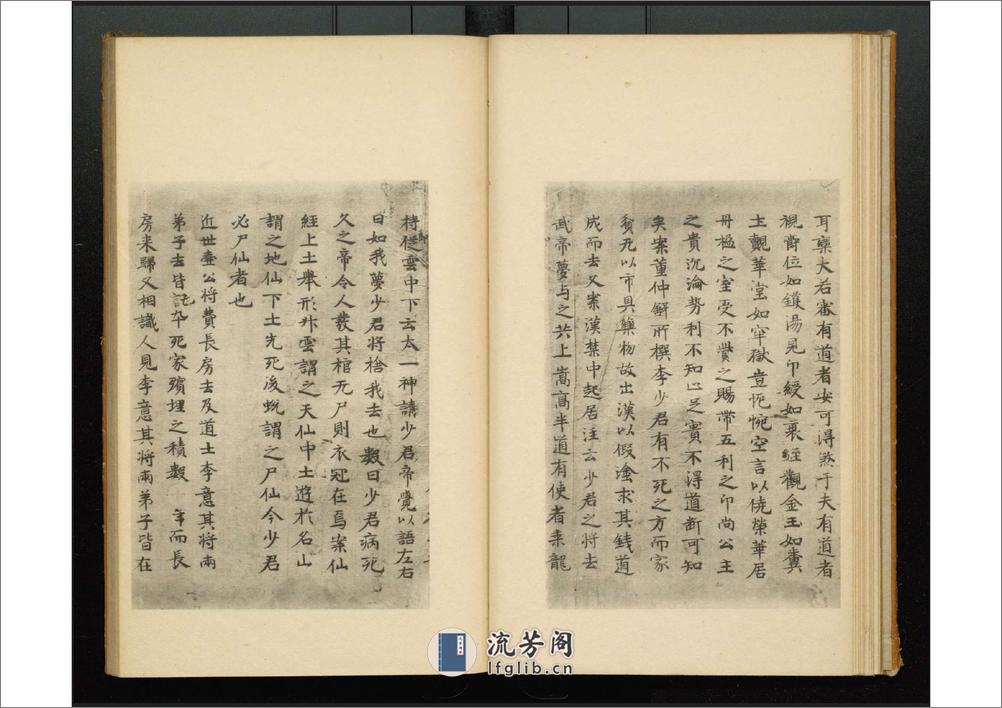 耳欒大若審有道者安可得煞乎夫有道者
視爵位如鑊湯見印綬如衰絰觀金玉如糞
土觀華堂如牢獄豈惋空言以僥榮華居
丹楹之室受不貲之賜帶五利之印尚公主
之貴沉淪勢利不知止足實不得道斷可知
矣案董仲舒所撰李少君有不死之方而家
貧无以市具藥物故出漢以假塗求其錢道
成而去又案漢禁中起居注云少君之將去
武帝夢与之共上嵩高半道有使者来龍
持從雲中下云太一神請少君帝覺以語左右
曰如我夢少君將捨我去也數日少君病死
久之帝令人發其棺无尸則衣冠在焉案仙
經上士舉形升雲謂之天仙中士遊於名山
謂之地仙下士先死後蛻謂之尸仙今少君
必尸仙者也
近世壺公將費長房去及道士李意其將兩
弟子去皆託卒死家殯埋之積數年而長
房来歸又相識人見李意其將兩弟子皆在
流芳阁
lfglib.cn